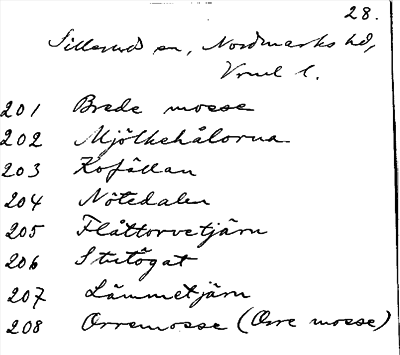 28.
Sillerud sn, Nordmarks hd,
Vrml l.
201 Brede mosse
202 Mjölkehålorna
203 Kofållan
204 Nötedalen
205 Flåttorvetjärn
206 Stutögat
207 Lämmetjärn
208 Orremosse (Orre mosse)